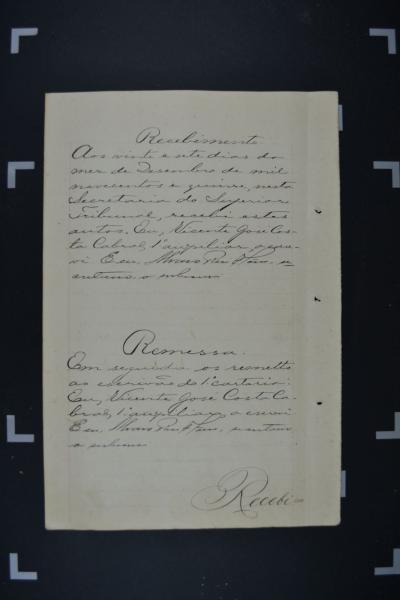 Recebimento
Aos vinte e sete dias do
mez de Dezembro de mil
novecentos e quinze, nesta
Secretaria do Superior
Tribunal, recebi estes
autos. Eu, Vicente José Cos-
ta Cabral, 1º auxiliar, o escre-
vi E eu,
o subscrevi
Remessa.
Em seguida os remetto
ao escrivão do 1º cartorio.
Eu, Vicente José Costa Ca-
bral, 1º auxiliar, o escrevi
E eu,
o subscrevi
Recebi